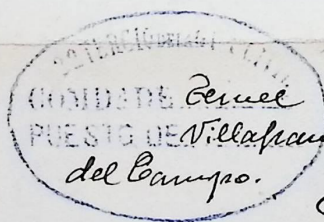 COMDA DE Teruel
PUESTO DE Villafran
del Campo.